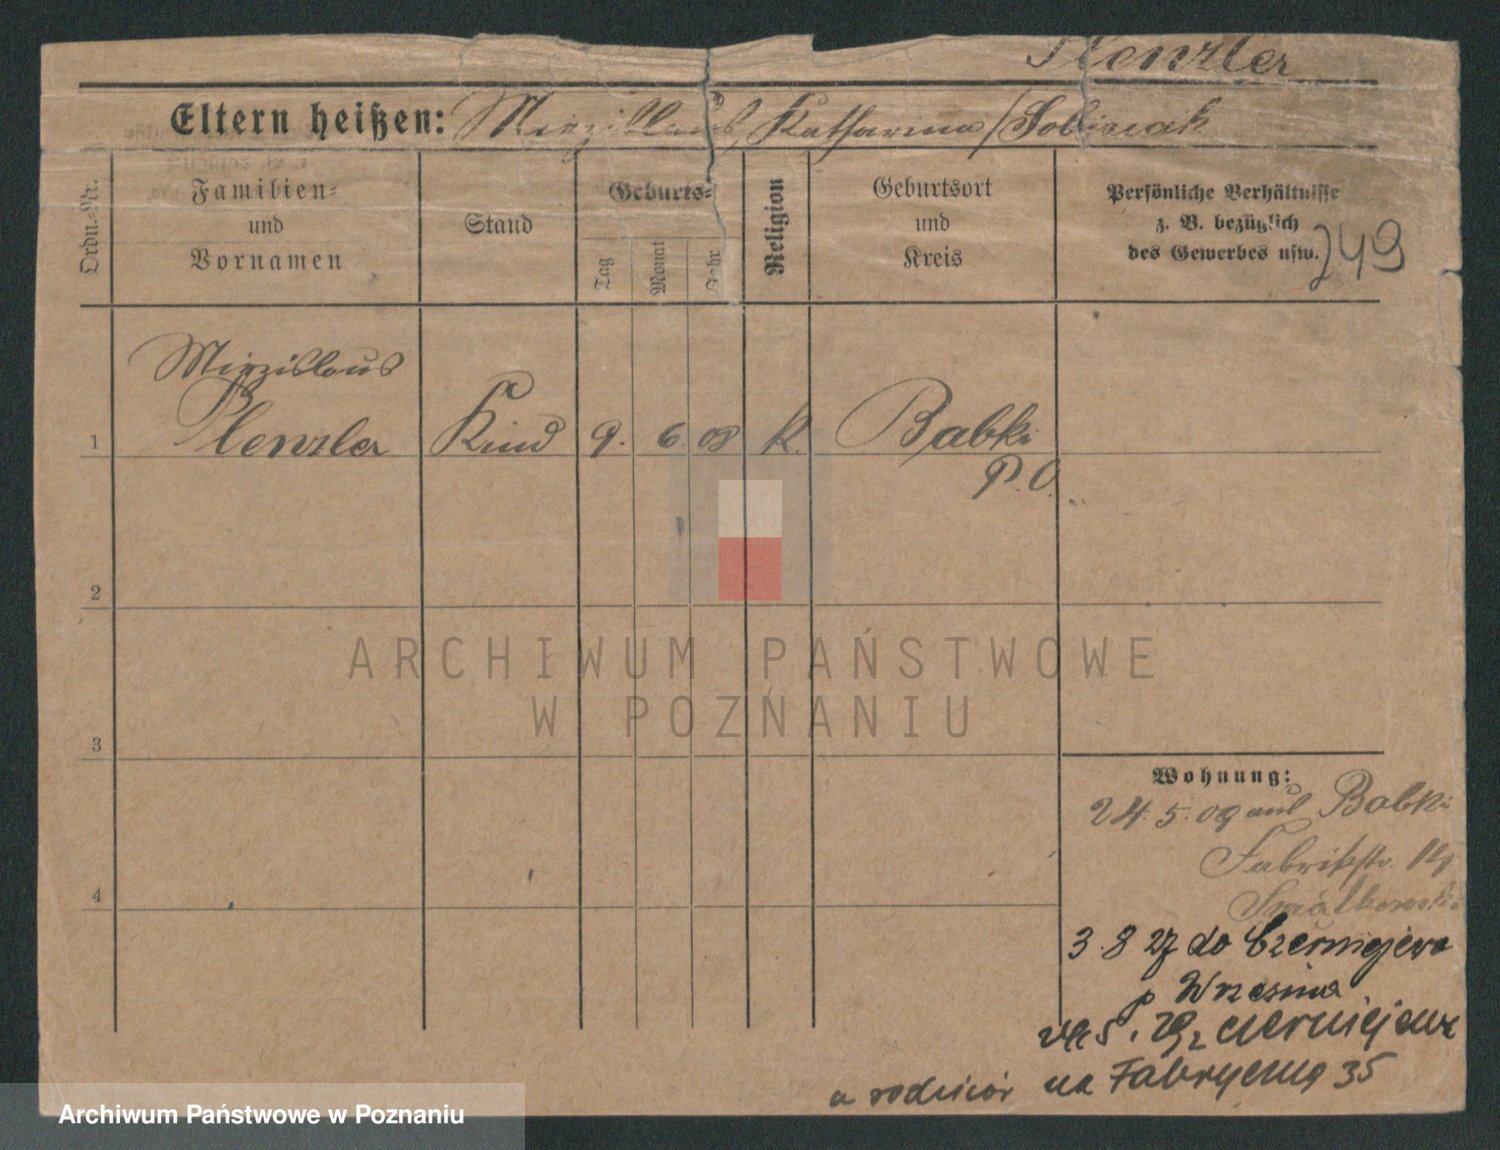 Plenzler
Eltern heißen: Miezislaus, Katharina / Sobierak
Ordn.-Nr.
Familien-
und
Vornamen
Stand
Geburts-
Tag
Monat
Jahr
Religion
Geburtsort
und
Kreis
Persönliche Verhältnisse
z. B. bezüglich
des Gewerbes usw.
749
1
Miezislaus
Plenzler
Kind
9.
6.
08
K.
Babki
P. O.
2
3
4
Wohnung:
24. 5. 09 aus Babki
Fabrikstr.
3. 8 27 do Czerniejewa
p Wrzesina
24. 5. 29 z Czerniejewa
u rodziców na Fabryczną 35
ARCHIWUM PAŃSTWOWE
W POZNANIU
Archiwum Państwowe w Poznaniu